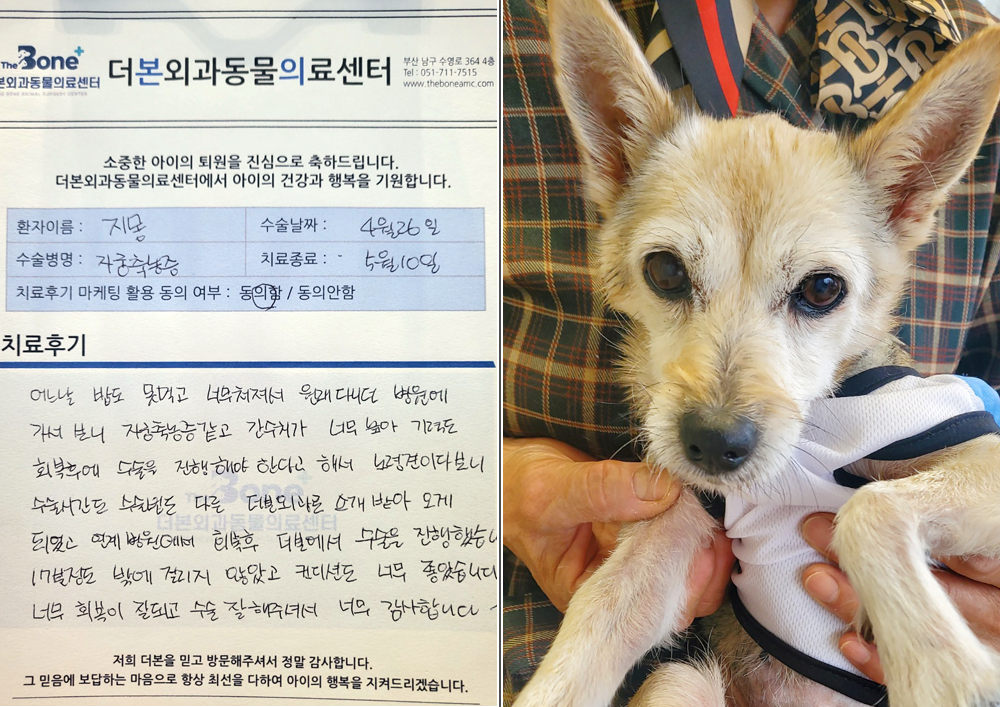 The Bone+
본외과동물의료센터
THE BONE ANIMAL SURGERY CENTER
더본외과동물의료센터
부산 남구 수영로 364 4층
Tel : 051-711-7515
www.theboneamc.com
소중한 아이의 퇴원을 진심으로 축하드립니다.
더본외과동물의료센터에서 아이의 건강과 행복을 기원합니다.
환자이름 : 지몽 수술날짜 : 4월26일
수술병명 : 자궁축농증 치료종료 : - 5월10일
치료후기 마케팅 활용 동의 여부 : 동의함 / 동의안함
치료후기
어느날 밥도 못먹고 너무처져서 원래다니던 병원에
가서 보니 자궁축농증같고 간수치가 너무 높아 기력도
회복후에 수술을 진행해야 한다고 해서 노령견이다보니
수술시간도 수술년도 다른 더본외과로 소개받아 오게
되었고 연계병원에서 회복후 더본에서 수술을 진행했습니
17분정도 밖에 걸리지 않았고 컨디션도 너무 좋았습니다
너무 회복이 잘되고 수술 잘해주셔서 너무 감사합니다
The Bone+
더본외과동물의료센터
저희 더본을 믿고 방문해주셔서 정말 감사합니다.
그 믿음에 보답하는 마음으로 항상 최선을 다하여 아이의 행복을 지켜드리겠습니다.